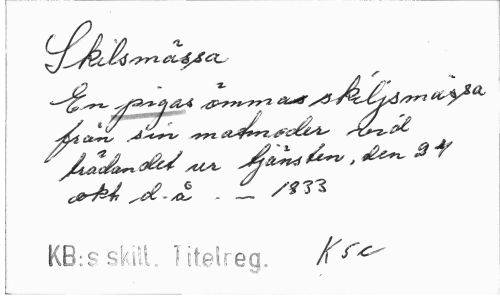 Skilsmässa
En pigas ömmas skiljsmässa
från sin matmoder vid
trädandet ur tjänsten, den 24
okt. d. å. — 1833
KB:s skill. Titelreg. K5c